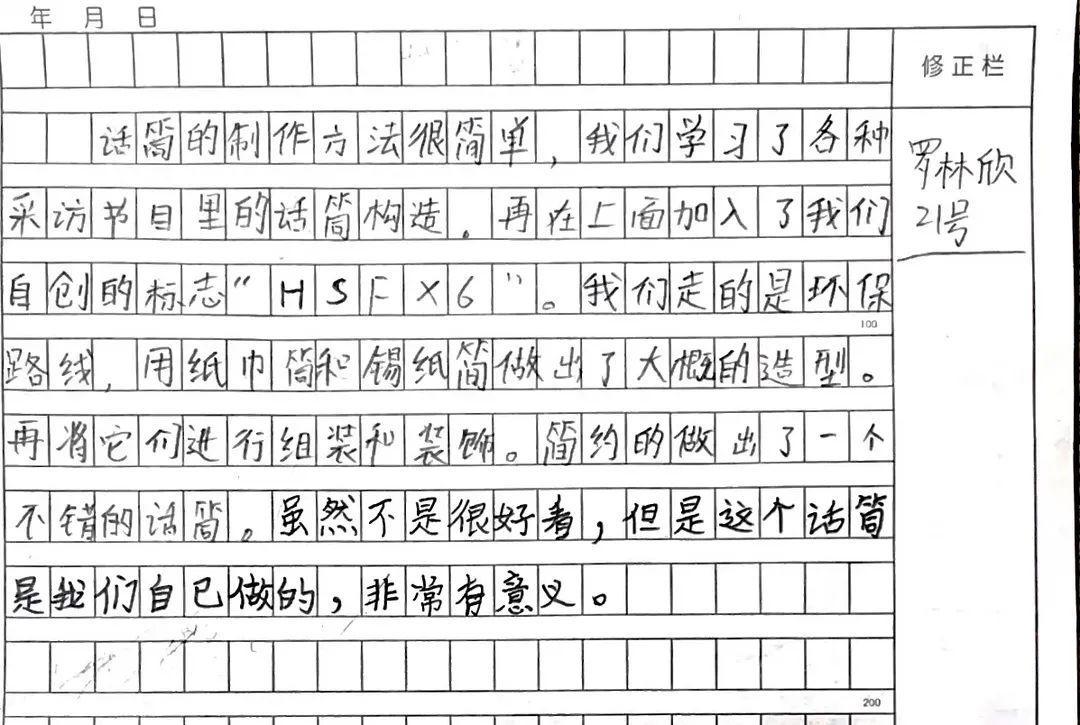 年 月 日
修正栏
话筒的制作方法很简单,我们学习了各种
采访节目里的话筒构造。再在上面加入了我们
自创的标志“HSFX6”。我们走的是环保
100
路线,用纸巾筒和锡纸筒做出了大概的造型。
再将它们进行组装和装饰。简约的做出了一个
不错的话筒。虽然不是很好看,但是这个话筒
是我们自已做的,非常有意义。
200
罗林欣
21号